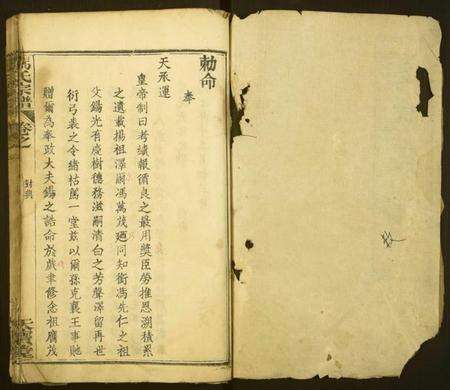 勅命
奉
天承運
皇帝制曰考績報循良之最用奬臣勞推恩溯積累
之遺載揚祖澤爾馮萬茂廼同知銜馮先仁之祖
父錫光有慶樹德務滋嗣清白之芳聲澤留再世
衍弓裘之令緒祜篤一堂玆以爾孫克襄王事貤
贈爾為奉政大夫錫之誥命於戲聿修念祖膺茂
馮氏宗譜
卷之
封典